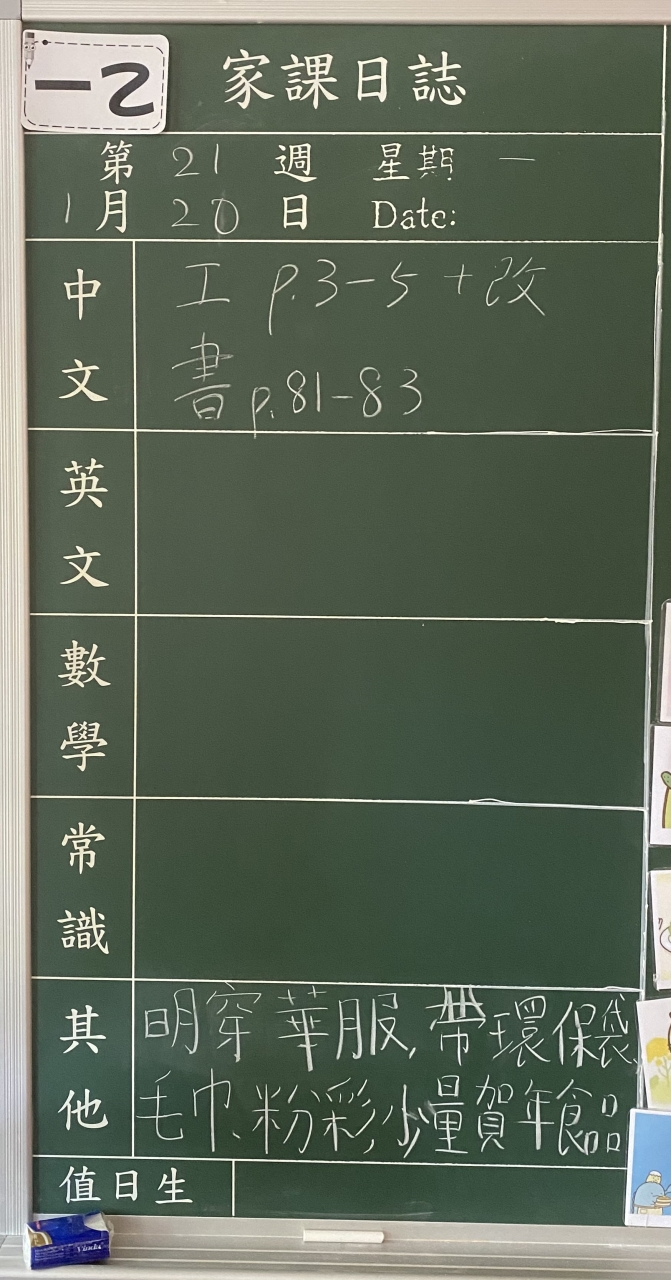 一乙
家課日誌
第 21 週 星期 一
1月 20 日 Date:
中文
工 p.3-5 + 改
書 p.81-83
英文
數學
常識
其他
明穿華服,帶環保袋、
毛巾、粉彩,少量賀年食品
值日生